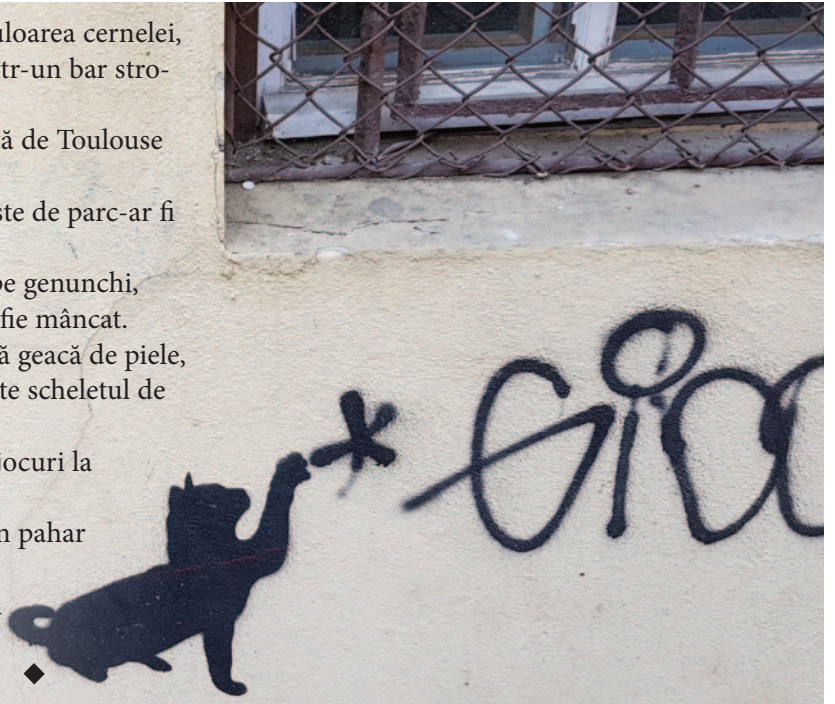 uloarea cernelei,
tr-un bar stro-
ă de Toulouse
ste de parc-ar fi
pe genunchi,
fie mâncat.
ă geacă de piele,
te scheletul de
jocuri la
n pahar